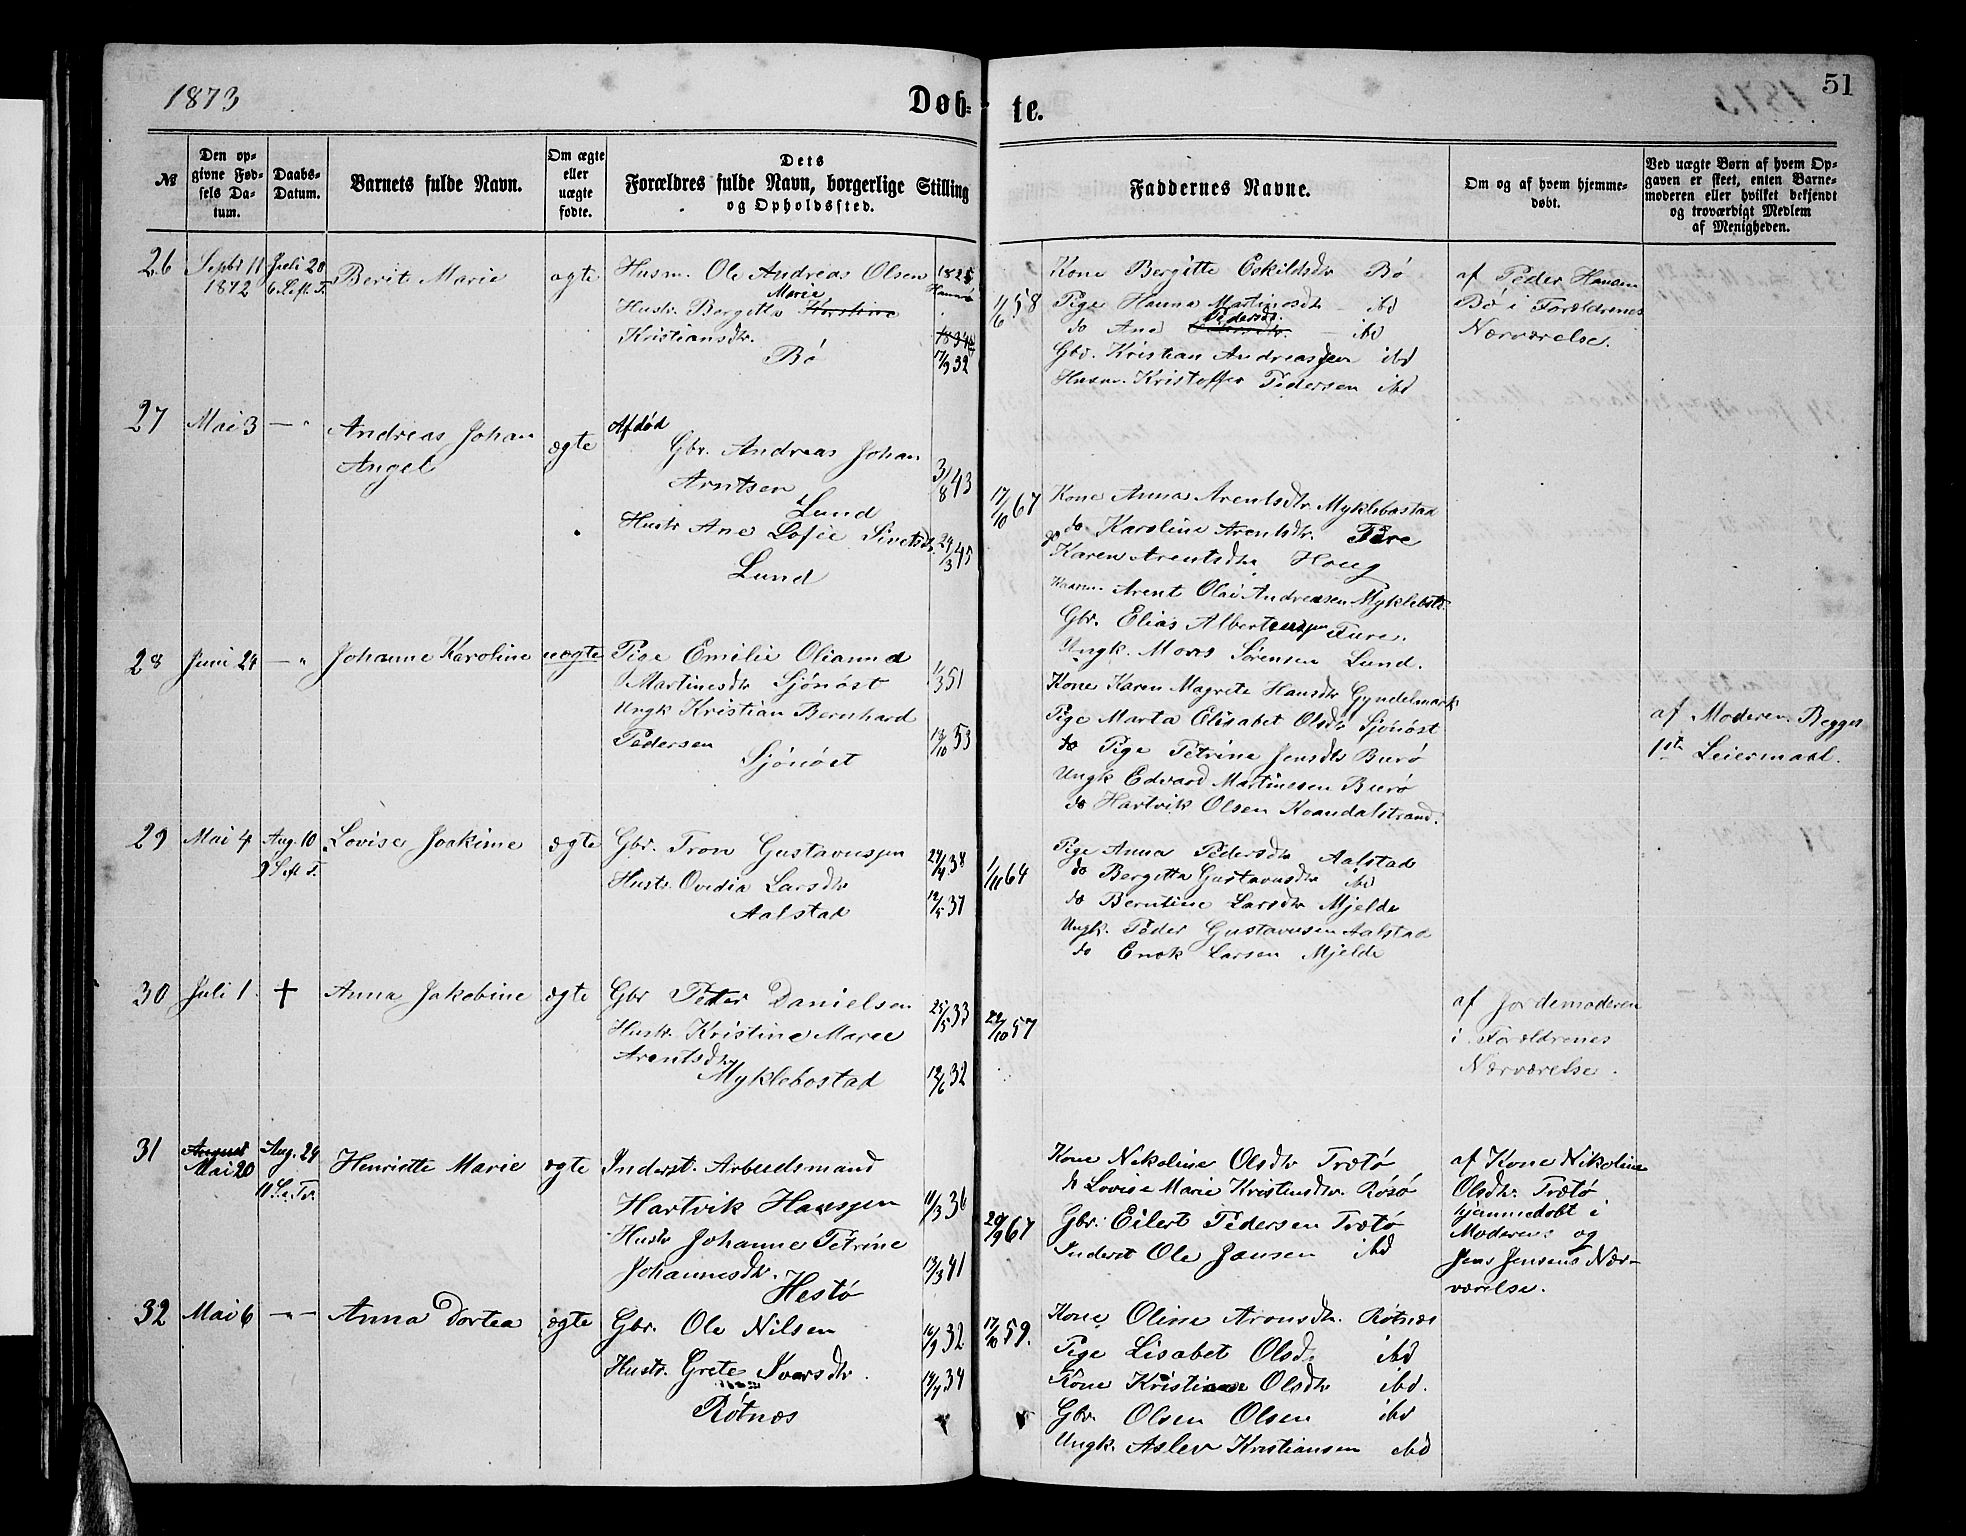 1873
Døb-
te.
51
№
Den op-
givne Fød-
sels Da-
tum.
Daabs-
Datum.
Barnets fulde Navn.
Om ægte
eller
uægte
fødte.
Dets
Forældres fulde Navn, borgerlige Stilling
og Opholdssted.
Faddernes Navne.
Om og af hvem hjemme-
døbt.
Ved uægte Børn af hvem Op-
gaven er skeet, enten Barne-
moderen eller hvilket bekjendt
og troværdigt Medlem
af Menigheden.
26
Septbr 11
1872
Juli 20
6 S. eft. T.
Berit Marie
ægte
Husm. Ole Andreas Olsen
1825
Marie
Hustr. Bergitta
Kristiansdtr.
Bø
17/9 32
11/6 58
Kone Bergitte Eskildsdtr Bø
Pige Hanna Martinosdtr ibd
do Ane Pedersdr. ibd
Gbr. Kristian Andreassen ibd
Husm. Kristoffer Pedersen ibd
af Peder Hansen
Bø i Forældrenes
Nærværelse.
27
Mai 3
— "
Andreas Johan
Angel
ægte
Afdød
Gbr. Andreas Johan
Arntsen
Lund
31/8 43
Hustr Ane Sofie Sivertsdtr.
Lund
24/3 45
17/10 67
Kone Anna Arentsdtr Myklebostad
do Karoline Arentsdtr. Fure
do Karen Arentsdtr Houg
Kaarm. Arent Olai Andreasen Myklebost.
Gbr. Elias Albertsen Fure.
Ungk. Mons Sørensen Lund.
28
Juni 24
— "
Johanne Karoline
uægte
Pige Emilie Olianna
Martinesdtr Sjønøst
1/3 51
Ungk Kristian Bernhard
Pedersen
Sjønøst
13/10 53
Kone Karen Magrete Hansdtr Gyndelmark
Pige Marta Elisabet Olsdtr Sjønøst
do Pige Petrine Jensdtr Burø
Ungk Edvard Martinussen Burø
do Hartvik Olsen Kvandalstrand.
af Moderen. Begges
1ste Leiermaal.
29
Mai 4
Aug. 10
9 S eft T.
Lovise Joakime
ægte
Gbr. Tron Gustavussen
24/4 38
Hustr. Ovedia Larsdtr
Aalstad
12/5 37
1/11 64
Pige Anna Pedersdtr Aalstad
do Bergitta Gustavusdtr ibd
do Berntine Larsdtr Mjelde
Ungk. Peder Gustavusen Aalstad
do Enok Larsen Mjelde
30
Juli 1.
†
Anna Jakobine
ægte
Gbr Peder Danielsen
25/5 33
Hustr. Kristine Marie
Arentsdtr
Myklebostad
12/6 32
22/10 57
af Jordemoderen
i Forældrenes
Nærværelse.
31
August
Mai 20
Aug. 24
11 S. e. Tr.
Henriette Marie
ægte
Inderst. Arbeidsmand
Hartvik Hanssen
11/3 36
Hustr Johanne Petrine
Johannesdtr.
Hestø
13/3 41
29/9 67
Kone Nikoline Olsdtr Trætø
do Lovise Marie Kristensdtr. Røsø
Gbr. Eilert Pedersen Trætø
Inderst Ole Jansen ibd
af Kone Nikoline
Olsdtr. Trætø
hjemmedøbt i
Moderens og
Jens Jensens Nær-
værelse.
32
Mai 6
— " —
Anna Dortea
ægte
Gbr. Ole Nilsen
16/9 32
Hustr. Grete Ivarsdtr.
Røtnæs
14/4 34
17/10 59.
Kone Oline Aronsdtr. Røtnæs
Pige Lisabet Olsd. ibd
Kone Kristiane Olsdtr ibd.
Gbr. Olsen Olsen ibd
Ungk. Aslev Kristiansen ibd